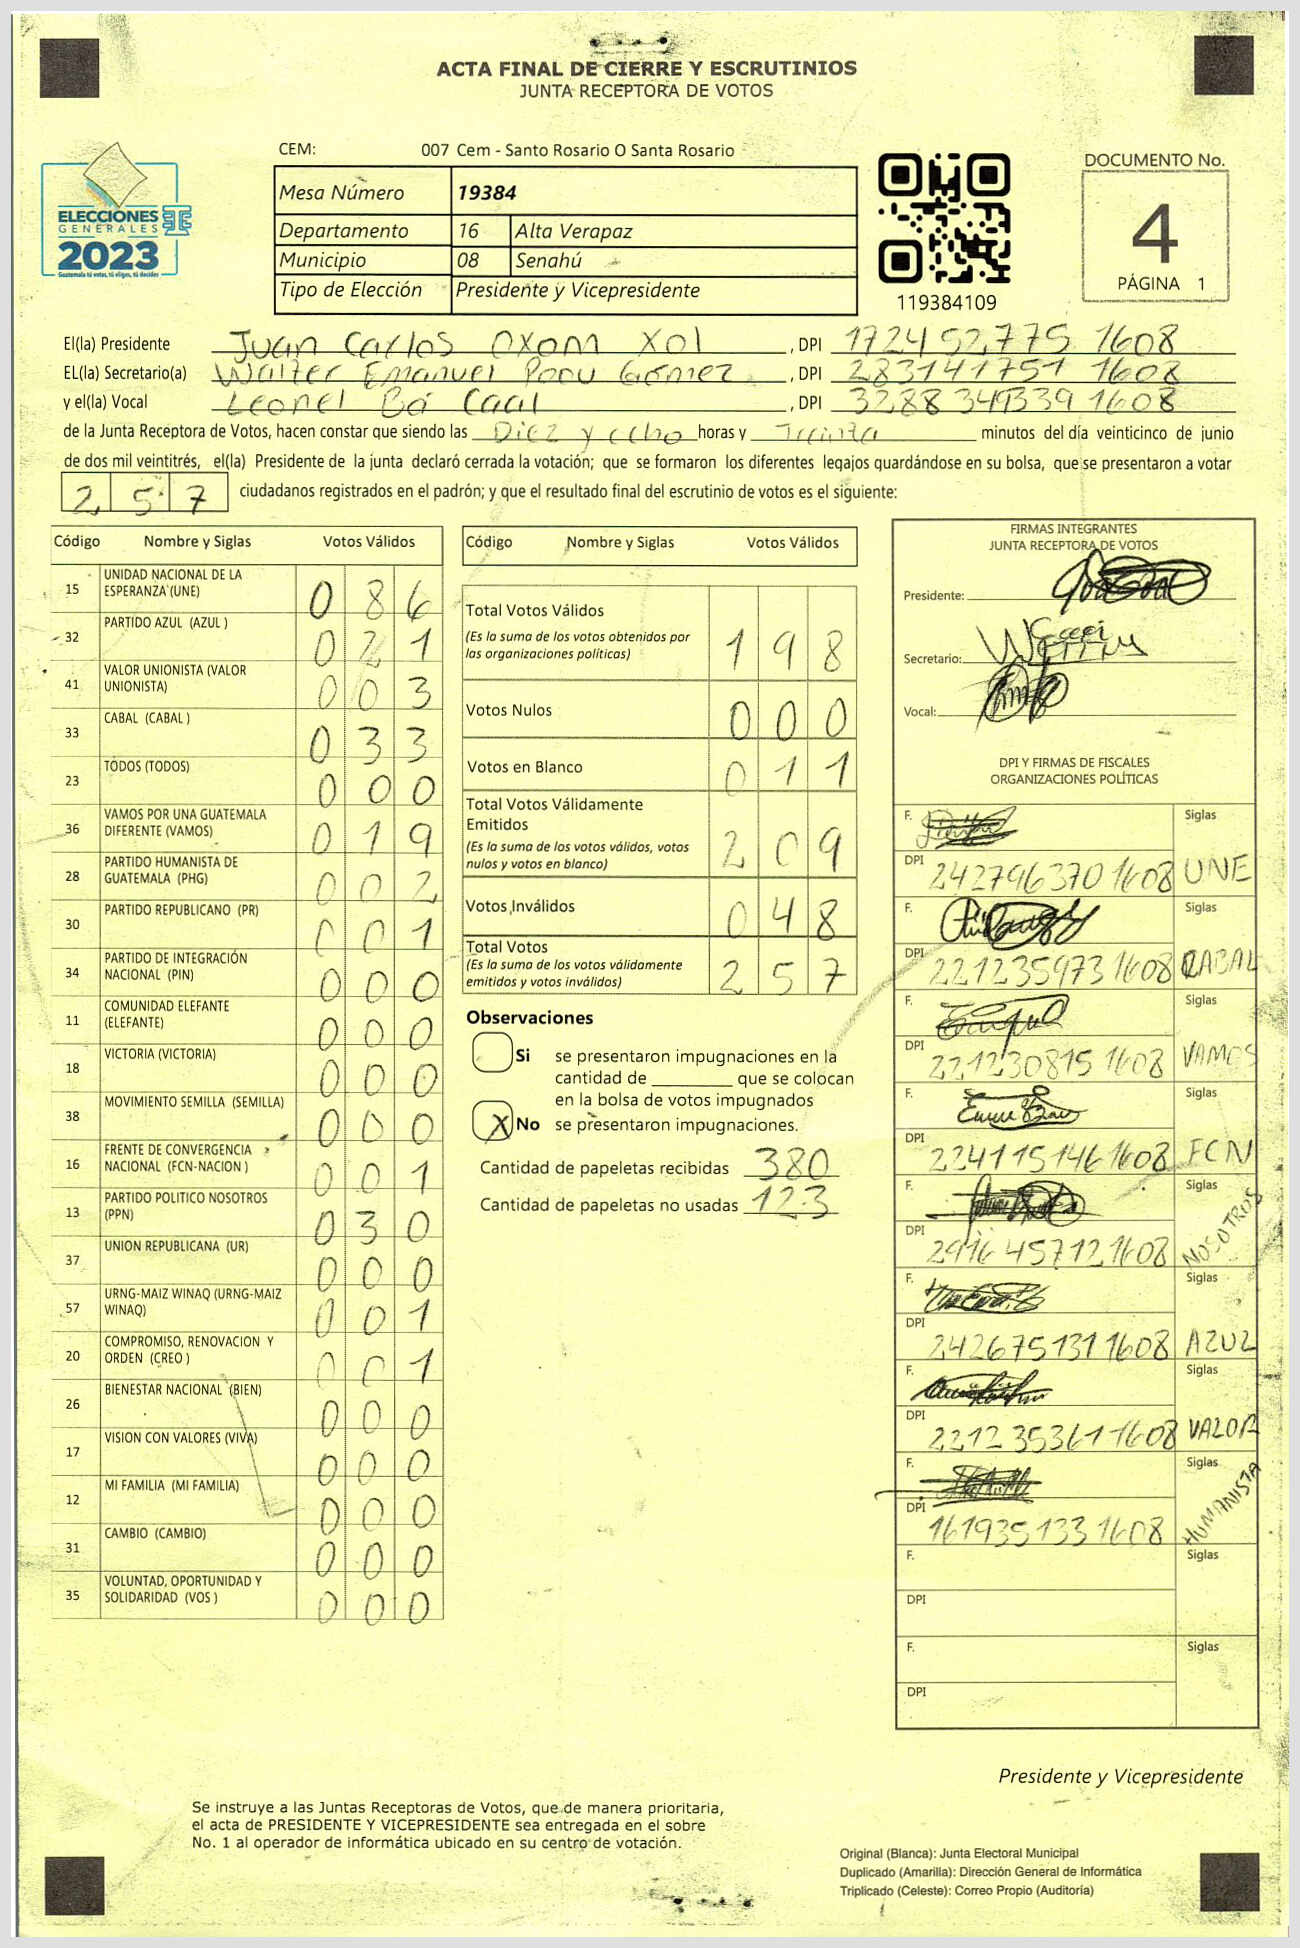 ACTA FINAL DE CIERRE Y ESCRUTINIOS
JUNTA RECEPTORA DE VOTOS
CEM: 007 Cem - Santo Rosario O Santa Rosario
ELECCIONES
GENERALES
2023
Guatemala tú votas, tú eliges, tú decides
Mesa Número 19384
Departamento 16 Alta Verapaz
Municipio 08 Senahú
Tipo de Elección Presidente y Vicepresidente
119384109
DOCUMENTO No.
4
PÁGINA 1
El(la) Presidente Juan Carlos Oxom Xol, DPI 172452775 1608
EL(la) Secretario(a) Walter Emanuel Pocu Gómez, DPI 283141751 1608
y el(la) Vocal Leonel Bá Caal, DPI 3288 349339 1608
de la Junta Receptora de Votos, hacen constar que siendo las Diez y ocho horas y Treinta minutos del día veinticinco de junio
de dos mil veintitrés, el(la) Presidente de la junta declaró cerrada la votación; que se formaron los diferentes legajos guardándose en su bolsa, que se presentaron a votar
2 5 7 ciudadanos registrados en el padrón; y que el resultado final del escrutinio de votos es el siguiente:
Código Nombre y Siglas Votos Válidos
15 UNIDAD NACIONAL DE LA ESPERANZA (UNE) 0 8 6
32 PARTIDO AZUL (AZUL ) 0 2 1
41 VALOR UNIONISTA (VALOR UNIONISTA) 0 0 3
33 CABAL (CABAL ) 0 3 3
23 TODOS (TODOS) 0 0 0
36 VAMOS POR UNA GUATEMALA DIFERENTE (VAMOS) 0 1 9
28 PARTIDO HUMANISTA DE GUATEMALA (PHG) 0 0 2
30 PARTIDO REPUBLICANO (PR) 0 0 1
34 PARTIDO DE INTEGRACIÓN NACIONAL (PIN) 0 0 0
11 COMUNIDAD ELEFANTE (ELEFANTE) 0 0 0
18 VICTORIA (VICTORIA) 0 0 0
38 MOVIMIENTO SEMILLA (SEMILLA) 0 0 0
16 FRENTE DE CONVERGENCIA NACIONAL (FCN-NACION ) 0 0 1
13 PARTIDO POLITICO NOSOTROS (PPN) 0 3 0
37 UNION REPUBLICANA (UR) 0 0 0
57 URNG-MAIZ WINAQ (URNG-MAIZ WINAQ) 0 0 1
20 COMPROMISO, RENOVACION Y ORDEN (CREO ) 0 0 1
26 BIENESTAR NACIONAL (BIEN) 0 0 0
17 VISION CON VALORES (VIVA) 0 0 0
12 MI FAMILIA (MI FAMILIA) 0 0 0
31 CAMBIO (CAMBIO) 0 0 0
35 VOLUNTAD, OPORTUNIDAD Y SOLIDARIDAD (VOS ) 0 0 0
Código Nombre y Siglas Votos Válidos
Total Votos Válidos 1 9 8
(Es la suma de los votos obtenidos por
las organizaciones políticas)
Votos Nulos 0 0 0
Votos en Blanco 0 1 1
Total Votos Válidamente
Emitidos 2 0 9
(Es la suma de los votos válidos, votos
nulos y votos en blanco)
Votos Inválidos 0 4 8
Total Votos 2 5 7
(Es la suma de los votos válidamente
emitidos y votos inválidos)
Observaciones
Si se presentaron impugnaciones en la
cantidad de ________ que se colocan
en la bolsa de votos impugnados
X No se presentaron impugnaciones.
Cantidad de papeletas recibidas 380
Cantidad de papeletas no usadas 123
FIRMAS INTEGRANTES
JUNTA RECEPTORA DE VOTOS
Presidente:
Secretario:
Vocal:
DPI Y FIRMAS DE FISCALES
ORGANIZACIONES POLÍTICAS
F. Siglas
DPI 242796370 1608 UNE
F. Siglas
DPI 221235973 1608 CABAL
F. Siglas
DPI 221230815 1608 VAMOS
F. Siglas
DPI 224115146 1608 FCN
F. Siglas
DPI 2916 45712 1608 NOSOTROS
F. Siglas
DPI 242675131 1608 AZUL
F. Siglas
DPI 2212 35361 1608 VALOR
F. Siglas
DPI 161935133 1608 HUMANISTA
F. Siglas
DPI
F. Siglas
DPI
Presidente y Vicepresidente
Se instruye a las Juntas Receptoras de Votos, que de manera prioritaria,
el acta de PRESIDENTE Y VICEPRESIDENTE sea entregada en el sobre
No. 1 al operador de informática ubicado en su centro de votación.
Original (Blanca): Junta Electoral Municipal
Duplicado (Amarilla): Dirección General de Informática
Triplicado (Celeste): Correo Propio (Auditoría)